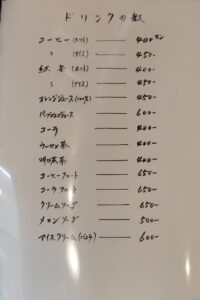 ドリンクの部
コーヒー(ホット) ―― 400エン
〃 (アイス) ―― 450-
紅茶(ホット) ―― 400-
〃 (アイス) ―― 450-
オレンジジュース(100%) ―― 450-
パッションジュース ―― 600-
コーラ ―― 400-
ウーロン茶 ―― 400-
明日葉茶 ―― 400-
コーヒーフロート ―― 650-
コーラフロート ―― 650-
クリームソーダ ―― 650-
メロンソーダ ―― 500-
アイスクリーム(バニラ) ―― 600-